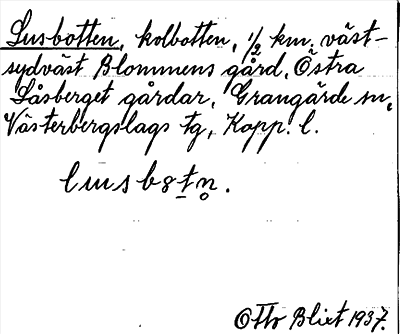 Lusbotten, kolbotten, 1/2 km. väst-
sydväst Blommens gård, Östra
Låsberget gårdar, Grangärde sn,
Västerbergslags tg, Kopp. l.
lusbotn.
Otto Blixt 1937.